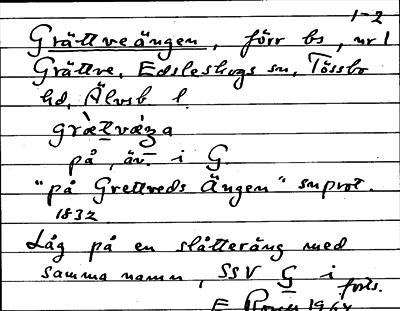 1-2
Grättveängen, förr bs, nr 1
Grättve, Edsleskogs sn, Tössbo
hd, Älvsb l.
grætvæŋa
på, äv. i G.
"på Grettveds Ängen" snprot.
1832
Låg på en slåtteräng med
samma namn, SSV G i
forts.
E 1964